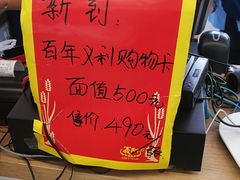 新到:
百年义利购物卡
面值500元
售价490元